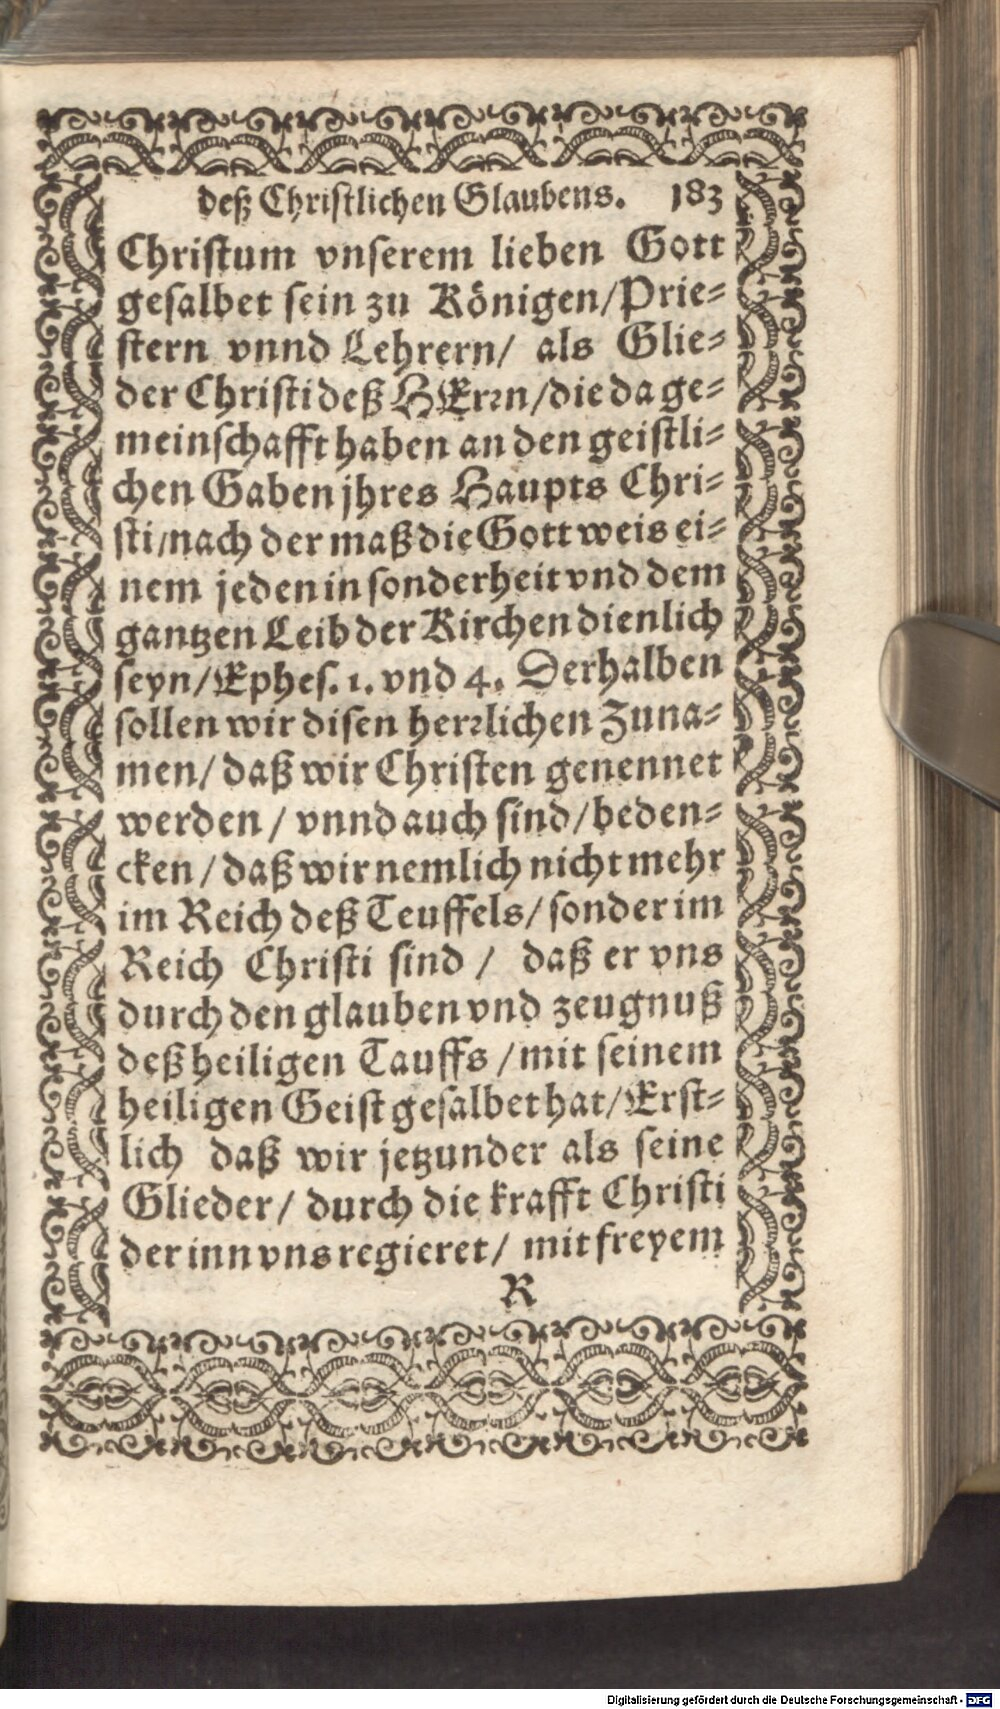 deß Christlichen Glaubens. 183
Christum vnserem lieben Gott
gesalbet sein zu Königen/Prie-
stern vnnd Lehrern/ als Glie-
der Christi deß HErrn/die da ge-
meinschafft haben an den geistli-
chen Gaben jhres Haupts Chri-
sti/nach der maß die Gott weis ei-
nem jeden in sonderheit vnd dem
gantzen Leib der Kirchen dienlich
seyn/Ephes. 1. vnd 4. Derhalben
sollen wir disen herrlichen Zuna-
men/ daß wir Christen genennet
werden / vnnd auch sind/beden-
cken / daß wir nemlich nicht mehr
im Reich deß Teuffels/ sonder im
Reich Christi sind / daß er vns
durch den glauben vnd zeugnuß
deß heiligen Tauffs /mit seinem
heiligen Geist gesalbet hat/Erst-
lich daß wir jetzunder als seine
Glieder/ durch die krafft Christi
der inn vns regieret/ mit freyem
R
Digitalisierung gefördert durch die Deutsche Forschungsgemeinschaft - DFG